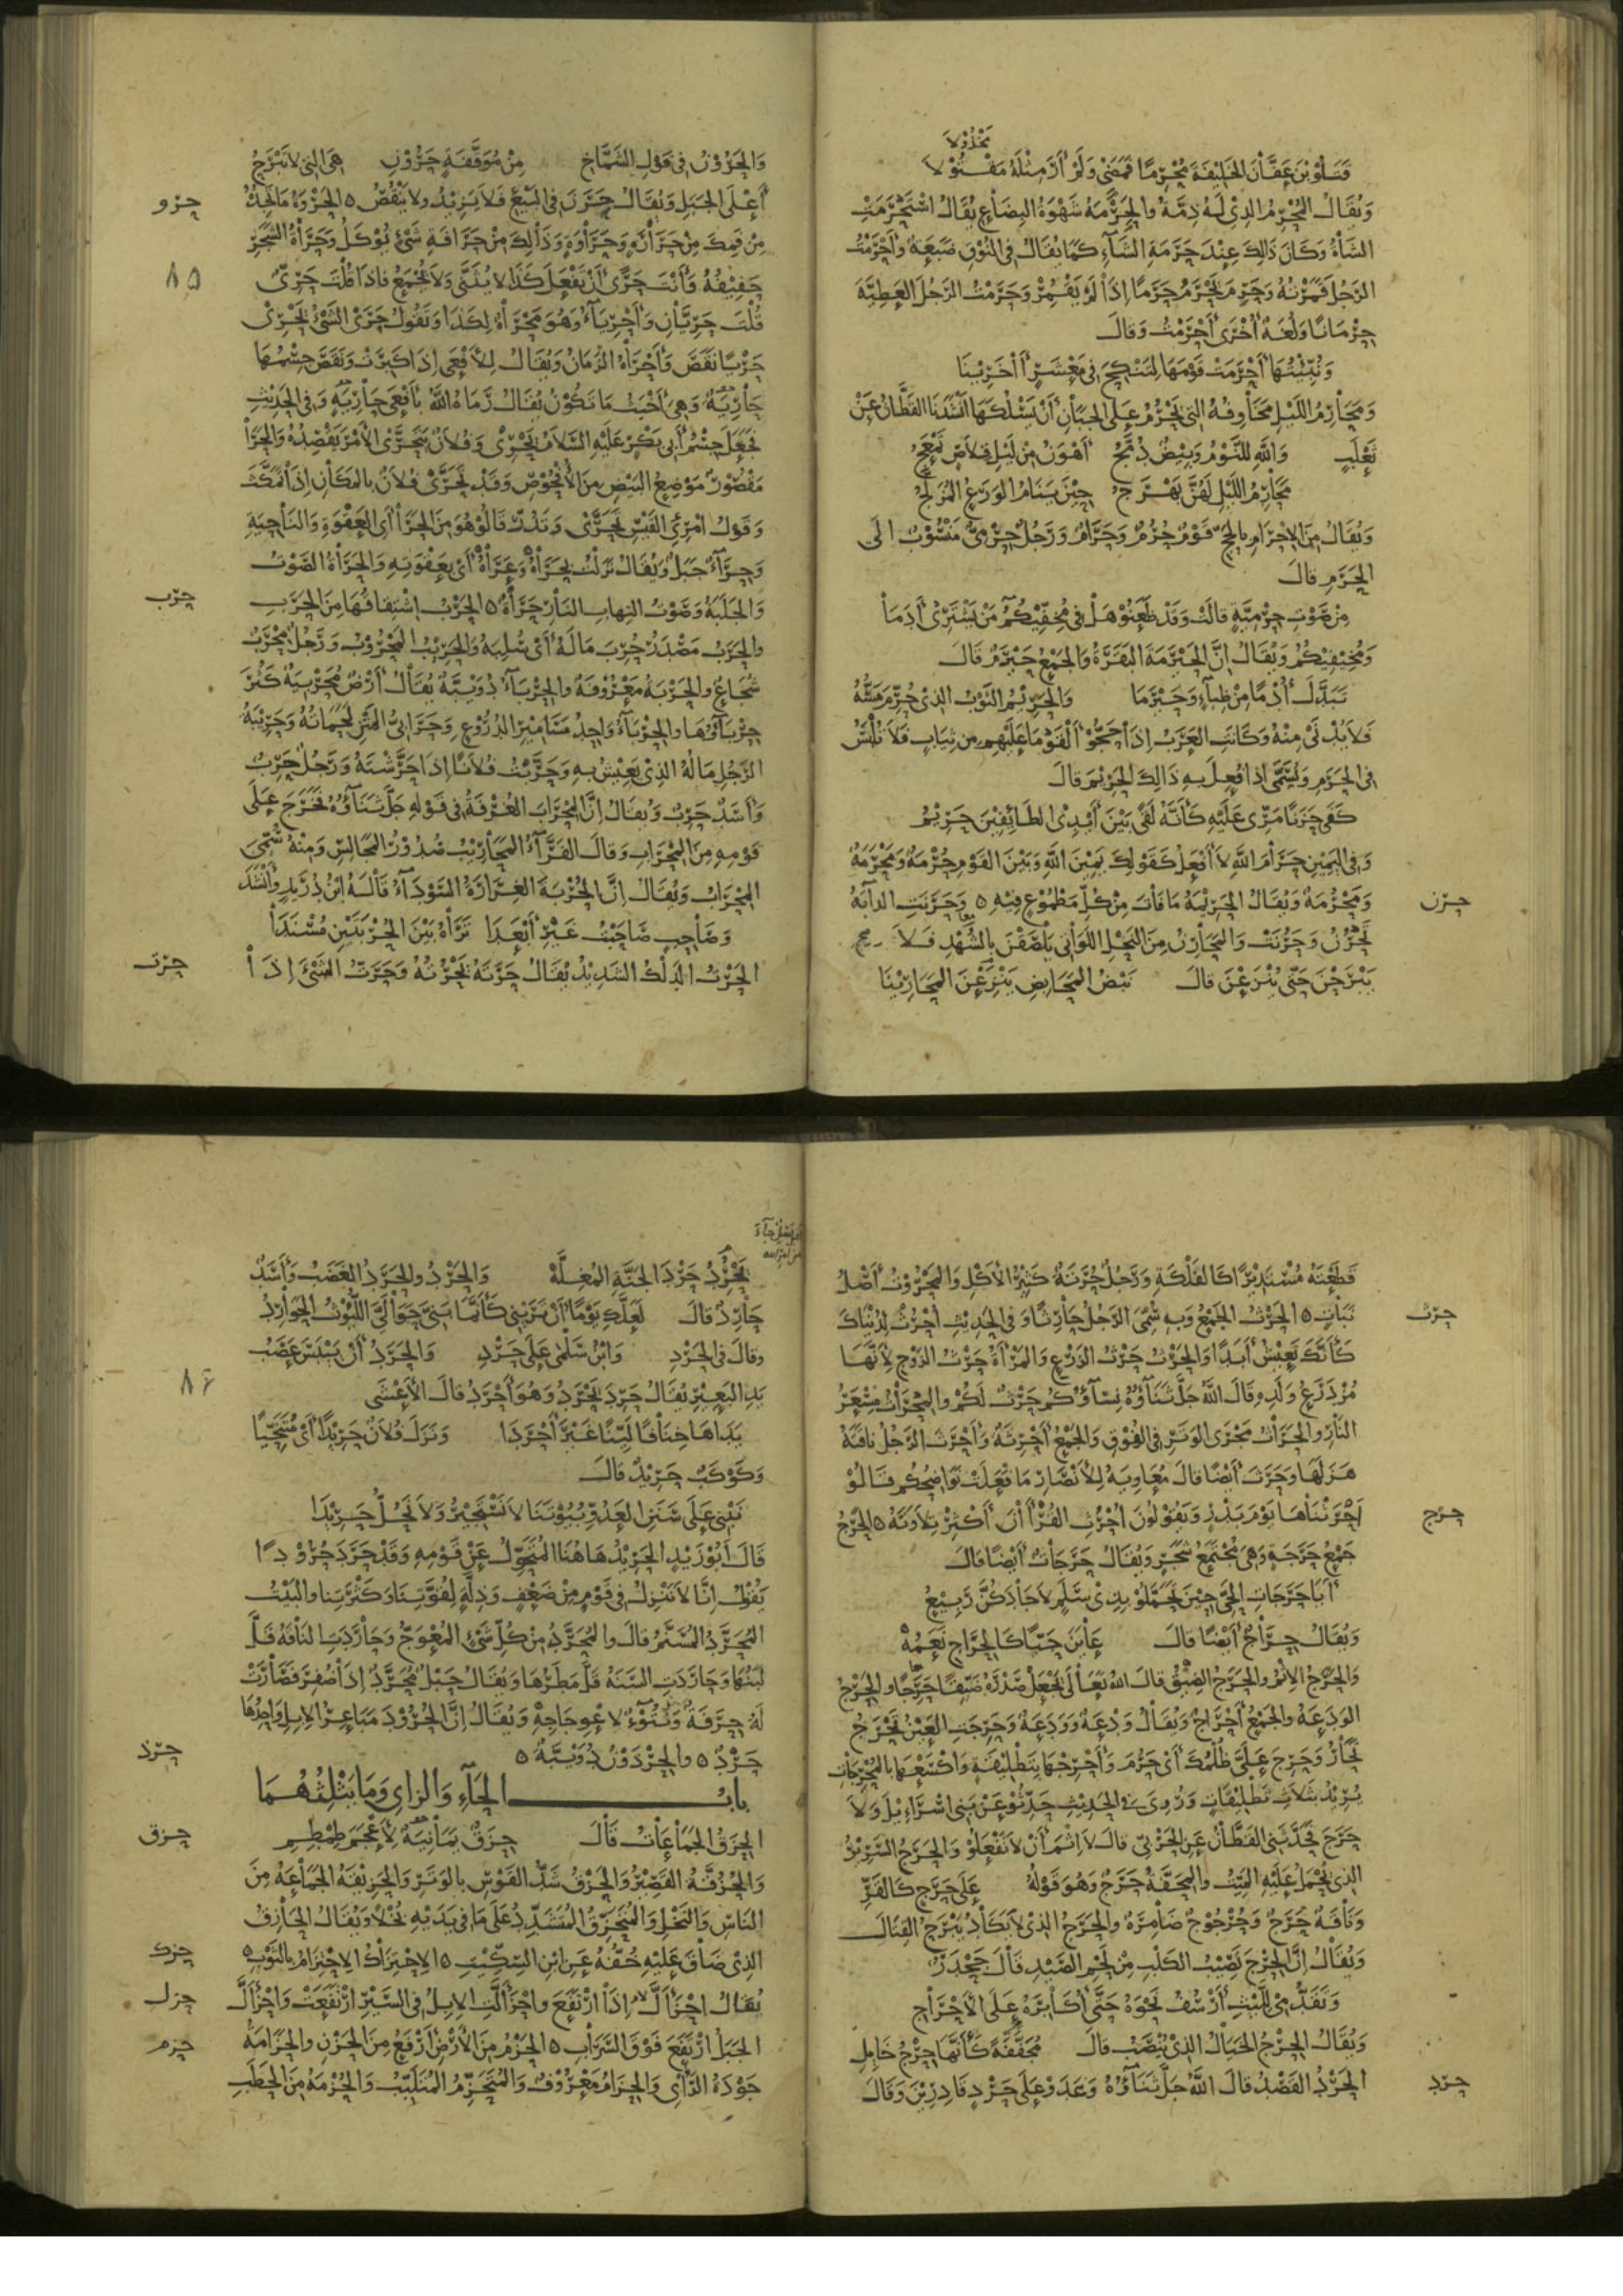 مَخْذُوْلاَ
قَتَلُوْ بْنَ عَفَّاْنَ الخَلِيْفَةَ مُحْرِمًا فَمَضَىْ وَلَمْ أَرَ مِثْلَهُ مَقْتُوْلاَ
وَيُقَالُ المُحْرِمُ الذِىْ لَهُ ذِمَّةٌ وَالحِرْمَةُ شَهْوَةُ البِضَاْعِ يُقَالُ اسْتَحْرَمَتِ
الشَاْةُ وَكَانَ ذَالِكَ عِنْدَ حَرْمَةِ الشَآءِ كَمَا يُقَالُ فِى النُوْقِ ضَبَعَةٌ وَأَحْرَمْتُ
الرَجُلَ قَمَرْتُهُ وَحَرِمَ يَحْرَمُ حَرَمًا إِذَاْ لَمْ يَقْمُرْ وَحَرَمْتُ الرَجُلَ العَطِيَّةَ
حِرْمَانًا وَلُغَةٌ أُخْرَىْ أَحْرَمْتُ وَقَالَ
وَنُبِّئْتُهَا أَحْرَمَتْ قَوْمَهَا لِتَنْكِحَ فِى مَعْشَرٍ أَاْخَرِيْنَا
وَمَحَاْرِمُ اللَيْلِ مَخَاْوِفُهُ التِى يَحْرُمُ عَلَى الجَبَاْنِ أَنْ يَسْلُكَهَا أَنْشَدَنَا القَطَّانُ عَنْ
ثَعْلَبٍ وَاللَّهِ لَلنَّوْمُ وَبِيْضٌ دُمَّجُ أَهْوَنُ مِنْ لَيْلِ قِلاَصٍ تَمْعَجُ
مَحَاْرِمُ اللَيْلِ لَهُنَّ بَهْرَجُ حِيْنَ يَنَامُ الوَرَعُ المُزَلَّجُ
وَيُقَالُ مِنَ الإِحْرَامِ بِالحَجِّ قَوْمٌ حُرُمٌ وَحَرَامٌ وَرَجُلٌ حِرْمِىٌّ مَنْسُوْبٌ إِلَى
الحَرَمِ قَالَ
مِنْ صَوْتِ حِرْمِيَّةٍ قَالَتْ وَقَدْ ظَعَنُوْ هَلْ فِى مُخِفِّيْكُمُ مَنْ يَشْتَرِىْ أَدَمَاْ
وَمُخِيْفِيْكُمْ وَيُقَالُ إِنَّ الحَيْرَمَةَ البَقَرَةُ وَالجَمْعُ حَيْرَمٌ قَالَ
تَبَدَّلَ أُدْمًا مِنْ ظِبَاْءٍ وَحَيْرَمَا وَالحَرِيْمُ الثَوْبُ الذِى حُرِّمَ مَسُّهُ
فَلاَ يُدْنَىْ مِنْهُ وَكَانَتِ العَرَبُ إِذَاْ حَجُّوْ أَلْقَوْ مَا عَلَيْهِم مِن ثِيَابٍ فَلاَ تُلْبَسُ
فِى الحَرَمِ وَيُسَمَّى إِذَا فُعِلَ بِهِ ذَالِكَ الحَرِيْمَ قَالَ
كَفَى حَزَنًا مَرِّى عَلَيْهِ كَأَنَّهُ لَقًى بَيْنَ أَيْدِى الطَائِفِيْنَ حَرِيْمُ
وَفِى اليَمِيْنِ حَرَاْمُ اللَّهِ لاَ أَفْعَلُ كَقَوْلِكَ يَمِيْنَ اللَّهِ وَبَيْنَ القَوْمِ حُرْمَةٌ وَمَحْرَمَةٌ
وَمَحْرُمَةٌ وَيُقَالُ الحَرِيْمَةُ مَا فَاتَ مِنْ كُلِّ مَطْمُوْعٍ فِيْهِ ه وَحَرَنَتِ الدَآبَّةُ
حرن
تَحْرُنُ وَحَرُنَتْ وَالمَحَاْرِنُ مِنَ النَحْلِ اللَوَاْتِى يَلْصَقْنَ بِالشُهْدِ فَلاَ
يَبْرَحْنَ حَتَّى يُنْزَعْنَ قَالَ نَبْضُ المَحَاْبِضِ يَنْزِعْنَ المَحَاْرِيْنَا
وَالحَرُوْنُ فِى قَوْلِ الشَمَّاخِ مِنْ مُوَقَّفَةٍ حَرُوْنِ هِىَ التِى لاَ تَبْرَحُ
أَعْلَى الجَبَلِ وَيُقَالُ حَرَنَ فِى البَيْعِ فَلاَ يَزِيْدُ وَلاَ يَنْقُصُ ه الحَرْوَةُ مَا تَجِدُهُ
حرو
مِنْ فَمِكَ مِنْ حَرَاْرَةٍ وَحَرَاْوَةٍ وَذَاْلِكَ مِنْ حَرَاْفَةِ شَىْءٍ يُؤْكَلُ وَحَرَاْةُ الشَجَرِ
٨٥
حَفِيْفُهُ وَأَنْتَ حَرًى أَنْ تَفْعَلَ كَذَا لاَ يُثَنَّى وَلاَ يُجْمَعُ فَإِذَا قُلْتَ حَرِىٌّ
قُلْتَ حَرِيَّاْنِ وَأَحْرِيَآءُ وَهُوَ مَحْرَاْةٌ لِكَذَا وَتَقُوْلُ حَرَىْ الشَىْءُ يَحْرِىْ
حَرْيًا نَقَصَ وَأَحْرَاْهُ الزَمَانُ وَيُقَالُ لِلأَفْعَى إِذَا كَبِرَتْ وَنَقَصَ جِسْمُهَا
حَاْرِيَةٌ وَهِىَ أَخْبَثُ مَا تَكُوْنُ يُقَالُ رَمَاهُ اللَّهُ بِأَفْعَى حَاْرِيَةٍ وَفِى الحَدِيْثِ
فَجَعَلَ جِسْمُ أَبِى بَكْرٍ عَلَيْهِ السَّلاَمُ يَحْرِىْ وَفُلاَنٌ يَتَحَرَّىْ الأَمْرَ يَقْصِدُهُ وَالحَرَاْ
مَقْصُوْرٌ مَوْضِعُ البَيْضِ مِنَ الأُفْحُوْصِ وَقَدْ تَحَرَّىْ فُلاَنٌ بِالمَكَاْنِ إِذَاْ تَمَكَّثَ
وَقَوْلُ امْرِئِ القَيْسِ تَحَرَّىْ وَتَدُرّْ قَالُوْ هُوَ مِنَ الحَرَاْ أَىِ العَقْوَةِ وَالنَاْحِيَةِ
وَحِرَآءُ جَبَلٌ وَيُقَالُ نَزَلْتُ بِحَرَاْهُ وَعَرَاْهُ أَىْ بِعَقْوَتِهِ وَالحَرَاْةُ الصَوْتُ
وَالجَلَبَةُ وَصَوْتُ التِهَابِ النَاْرِ حَرَاْةٌ ه الحَرْبُ اشْتِقَاقُهَا مِنَ الحَرَبِ
حرب
وَالحَرَبُ مَصْدَرُ حُرِبَ مَالَهُ أَىْ سُلِبَهُ وَالحَرِيْبُ المَحْرُوْبُ وَرَجُلٌ مِحْرَبٌ
شُجَاعٌ وَالحَرْبَةُ مَعْرُوْفَةٌ وَالحِرْبَآءُ دُوَيْبَّةٌ يُقَالُ أَرْضٌ مُحَرْبِيَةٌ كَثُرَ
حِرْبَآؤُهَا وَالحِرْبَآءُ وَاحِدُ مَسَامِيْرِ الدُرُوْعِ وَحَرَاْبِىُّ المَتْنِ لَحَمَاتُهُ وَحَرِيْبَةُ
الرَجُلِ مَالُهُ الذِىْ يَعِيْشُ بِهِ وَحَرَّبْتُ فُلاَنًا إِذَا حَرَّشْتَهُ وَرَجُلٌ حَرِبٌ
وَأَسَدٌ حَرِبٌ وَيُقَالُ إِنَّ المِحْرَابَ الغُرْفَةُ فِى قَوْلِهِ جَلَّ ثَنَآؤُهُ فَخَرَجَ عَلَى
قَوْمِهِ مِنَ المِحْرَابِ وَقَالَ الفَرَّآءُ المَحَاْرِيْبُ صُدُوْرُ المَجَالِسِ وَمِنْهُ سُمِّىَ
المِحْرَابُ وَيُقَالُ إِنَّ الحُرْبَةَ الغِرَارَةُ السَوْدَآءُ قَاْلَهُ ابْنُ دُرَيْدٍ وَأَنْشَدَ
وَصَاْحِبٍ صَاْحَبْتُ غَيْرِ أَبْعَدَا تَرَاْهُ بَيْنَ الحُرْبَتَيْنِ مُسْنَدَاْ
الحَرْتُ الدَلْكُ الشَدِيْدُ يُقَالُ حَرَتَهُ يَحْرُتُهُ وَحَرَتَ الشَىْءَ إِذَاْ
حرت
قَطَعَهُ مُسْتَدِيْرًا كَالفَلْكَةِ وَرَجُلٌ حُرَتَةٌ كَثِيْرُ الأَكْلِ وَالمَحْرُوْتُ أَصْلُ
نَبَاْتٍ ه الحَرْثُ الجَمْعُ وَبِهِ سُمِّىَ الرَجُلُ حَاْرِثًا وَفِى الحَدِيْثِ احْرُثْ لِدُنْيَاكَ
حرث
كَأَنَّكَ تَعِيْشُ أَبَدًا وَالحَرْثُ حَرْثُ الزَرْعِ وَالمَرْأَةُ حَرْثُ الزَوْجِ لأَنَّهَا
مُزْدَرَعُ وَلَدِهِ قَالَ اللَّهُ جَلَّ ثَنَآؤُهُ نِسَآؤُكُمْ حَرْثٌ لَكُمْ وَالمِحْرَاْثُ مِسْعَرُ
النَاْرِ وَالحَرَاْثُ مَجْرَى الوَتَرِ فِى الفُوْقِ وَالجَمْعُ أَحْرِثَةٌ وَأَحْرَثَ الرَجُلُ نَاقَتَهُ
هَزَلَهَا وَحَرَثَ أَيْضًا قَالَ مُعَاوِيَةُ لِلأَنْصَارِ مَا فَعَلَتْ نَوَاضِحُكُم قَالُوْ
أَحْرَثْنَاهَا يَوْمَ بَدْرٍ وَيَقُوْلُوْنَ احْرُثِ القُرْأَاْنَ أَكْثِرْ تِلاَوَتَهُ ه الحَرَجُ
حرج
جَمْعُ حَرَجَةٍ وَهِىَ مُجْتَمَعُ شَجَرٍ وَيُقَالُ حَرَجَاتٌ أَيْضًا قَالَ
أَيَا حَرَجَاتِ الحَىِّ حِيْنَ تَحَمَّلُوْ بِذِىْ سَلَمٍ لاَ جَاْدَكُنَّ رَبِيْعُ
وَيُقَالُ حِرَاْجٌ أَيْضًا قَالَ عَاْيَنَ حَيًّا كَالحِرَاْجِ نَعَمُهْ
وَالحَرَجُ الإِثْمُ وَالحَرَجُ الضِيْقُ قَالَ اللَّهُ تَعَاْلَى يَجْعَلْ صَدْرَهُ ضَيِّقًا حَرَجًا وَالحِرْجُ
الوَدَعَةُ وَالجَمْعُ أَحْرَاجٌ وَيُقَالُ وَدْعَةٌ وَوَدَعَةٌ وَحَرِجَتِ العَيْنُ تَحْرَجُ
تَحَاْرُ وَحَرِجَ عَلَىَّ ظُلْمُكَ أَىْ حَرُمَ وَأَحْرَجَهَا بِتَطْلِيْقَةٍ وَاكْسَعْهَا بِالمُحْرِجَاْتِ
يُرِيْدُ بِثَلاَثِ تَطْلِيْقَاتٍ وَرُوِىَ فِى الحَدِيْثِ حَدِّثُوْ عَنْ بَنِى إِسْرَآءِيْلَ وَلاَ
حَرَجَ فَحَدَّثَنِى القَطَّانُ عَنِ الحَرْبِىِّ قَالَ لاَ إِثْمَ أَنْ لاَ تَفْعَلُوْ وَالحَرَجُ السَرِيْرُ
الذِى يُحْمَلُ عَلَيْهِ المَيِّتُ وَالمِحَفَّةُ حَرَجٌ وَهُوَ قَوْلُهُ عَلَى حَرَجٍ كَالقَرِّ
وَنَاْقَةٌ حَرَجٌ وَحُرْجُوْجٌ ضَاْمِرَةٌ وَالحَرَجُ الذِىْ لاَ يَكَاْدُ يَبْرَحُ القِتَالَ
وَيُقَاْلُ إِنَّ الحِرْجَ نَصِيْبُ الكَلْبِ مِنْ لَحْمِ الصَيْدِ قَاْلَ جَحْدَرٌ
وَتَقَدُّمِى لِلَّيْثِ أَرْسُفُ نَحْوَهُ حَتَّىْ أُكَاْبِرَهُ عَلَى الأَحْرَاْجِ
وَيُقَالُ الحِرْجُ الحِبَاْلُ الذِىْ يُنْصَبُ قَالَ مُجَفَّفَةٌ كَأَنَّهَا حِرْجُ حَابِلِ
الحَرْدُ القَصْدُ قَالَ اللَّهُ جَلَّ ثَنَآؤُهُ وَغَدَوْ عَلَى حَرْدٍ قَادِرِيْنَ وَقَالَ
حرد
يَحْرُدُ حَرْدَ الجَنَّةِ المُغِلَّةْ وَالحَرْدُ وَالحَرَدُ الغَضَبُ وَأَسَدٌ
حَاْرِدٌ قَالَ لَعَلَّكِ يَوْمًا أَنْ تَرَيْنِى كَأَنَّمَا بَنِىَّ حَوَالَىَّ اللُّيُوْثُ الحَوَاْرِدُ
وَقَالَ فِى الحَرْدِ وَابْنُ سَلْمَى عَلَى حَرْدِ وَالحَرَدُ أَنْ يَيْبَسَ عَصَبُ
٨٦
يَدِ البَعِيْرِ يُقَالُ حَرِدَ يَحْرَدُ وَهُوَ أَحْرَدُ قَالَ الأَعْشَى
يَدَاهَا خِنَاْفًا لَيِّنًا غَيْرَ أَحْرَدَا وَنَزَلَ فُلاَنٌ حَرِيْدًا أَىْ مُتَنَحِّيًا
وَكَوْكَبٌ حَرِيْدٌ قَالَ
نَبْنِى عَلَى سَنَنِ العَدُوِّ بُيُوْتَنَا لاَ نَسْتَجِيْرُ وَلاَ نَحُلُّ حَرِيْدَا
قَالَ أَبُوْ زَيْدٍ الحَرِيْدُ هَاهُنَا المُتَحَوِّلُ عَنْ قَوْمِهِ وَقَدْ حَرَدَ حُرُوْدًا
يَقُوْلُ إِنَّا لاَ نَنْزِلُ فِى قَوْمٍ مِنْ ضَعْفٍ وَذِلَّةٍ لِقُوَّتِنَا وَكَثْرَتِنَا وَالبَيْتُ
المُحَرَّدُ المُسَنَّمُ قَالَ وَالمُحَرَّدُ مِنْ كُلِّ شَىْءٍ المُعْوَجُّ وَحَاْرَدَتِ النَاْقَةُ قَلَّ
لَبَنُهَا وَحَارَدَتِ السَنَةُ قَلَّ مَطَرُهَا وَيُقَالُ حَبْلٌ مُحَرَّدٌ إِذَاْ ضُفِرَ فَصَاْرَتْ
لَهُ حِرَفَةٌ وَنُتُوْءٌ لاِعْوِجَاجِهِ وَيُقَالُ إِنَّ الحُرُوْدَ مَبَاعِرُ الإِبِلِ وَاحِدُهَا
حَرْدٌ ه وَالحِرْدَوْنُ دُوَيْبَّةٌ ه
حرد
بَابُ الحَآءِ وَالزَاىِ وَمَا يَثْلِثُهُمَا
الحِزَقُ الجَمَاْعَاتُ قَاْلَ حِزَقٌ يَمَانِيَةٌ لأَعْجَمَ طِمْطِمِ
حزق
وَالحُزُقَّةُ القَصِيْرُ وَالحَزْقُ شَدُّ القَوْسِ بِالوَتَرِ وَالحَزِيْقَةُ الجَمَاْعَةُ مِنَ
النَاسِ وَالنَحْلِ وَالمُتَحَزِّقُ المُتَشَدِّدُ عَلَى مَا فِى يَدَيْهِ بُخْلاً وَيُقَالُ الحَاْزِقُ
الذِىْ ضَاْقَ عَلَيْهِ خُفُّهُ عَنِ ابْنِ السِكِّيْتِ ه الاِحْتِزَاْكُ الاِحْتِزَامُ بِالثَوْبِ ه
حزك
يُقَالُ احْزَأَلَّ إِذَاْ ارْتَفَعَ وَاحْزَأَلَّتِ الإِبِلُ فِى السَيْرِ ارْتَفَعَتْ وَاحْزَأَلَّ
حزل
الجَبَلُ ارْتَفَعَ فَوْقَ السَرَاْبِ ه الحَزْمُ مِنَ الأَرْضِ أَرْفَعُ مِنَ الحَزْنِ وَالحَزَامَةُ
حزم
جَوْدَةُ الرَأْىِ وَالحِزَامُ مَعْرُوْفٌ وَالمُتَحَزِّمُ المُتَلَبِّبُ وَالحُزْمَةُ مِنَ الحَطَبِ